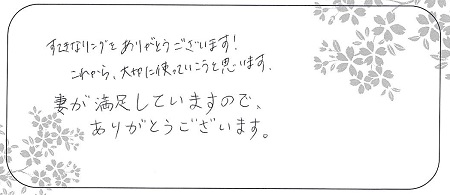 すてきなリングをありがとうございます！
これから、大切に使っていこうと思います．
妻が満足していますので、
ありがとうございます。